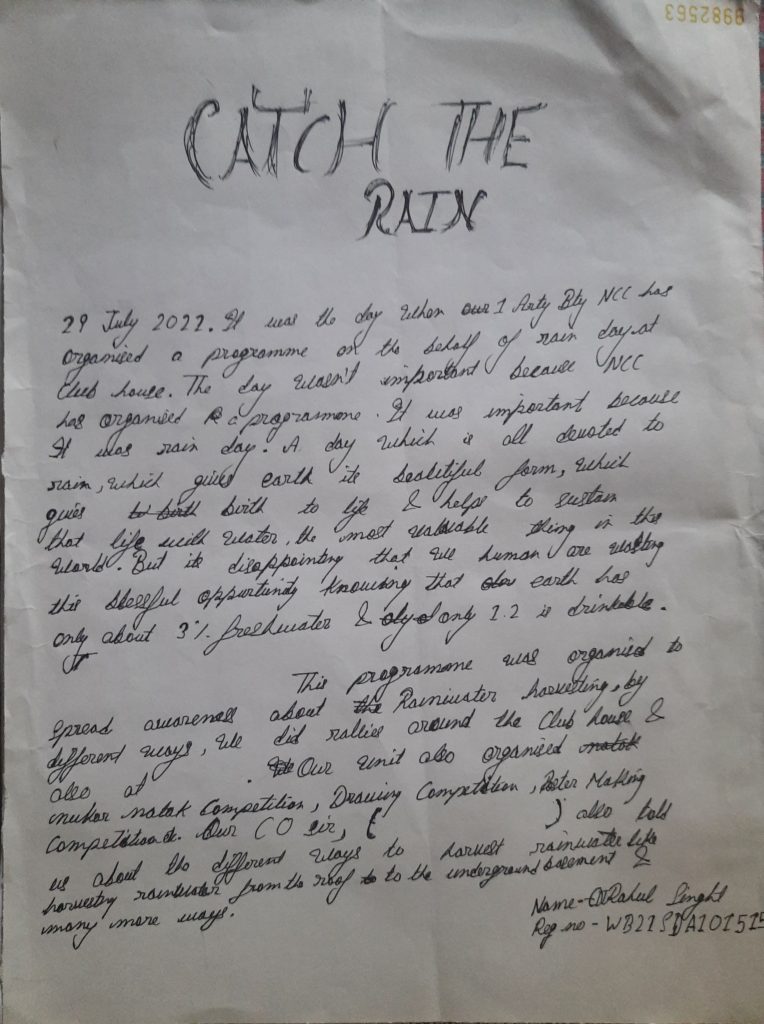 9982563
CATCH THE
RAIN
29 July 2022. It was the day when our 1 Arty Bty NCC has
organised a programme on the behalf of rain day at
Club house. The day wasn't important because NCC
has organised a programme. It was important because
It was rain day. A day which is all devoted to
rain, which gives earth its beautiful form, which
gives to birth birth to life & helps to sustain
that life with water, the most valuable thing in the
world. But its disappointing that we human are wasting
this blessful oppurtunity knowing that earth has
only about 3% freshwater & only 1.2 is drinkable.
This programme was organised to
spread awareness about the Rainwater harvesting, by
different ways, we did rallies around the Club house &
also at . Our unit also organised natak
nukar natak Competition, Drawing Competition, Poster Making
Competition. Our CO sir, ( ) also told
us about the different ways to harvest rainwater like
harvesting rainwater from the roof to to the underground basement &
many more ways.
Name - Rahul Singh
Reg no - WB21SDA101515